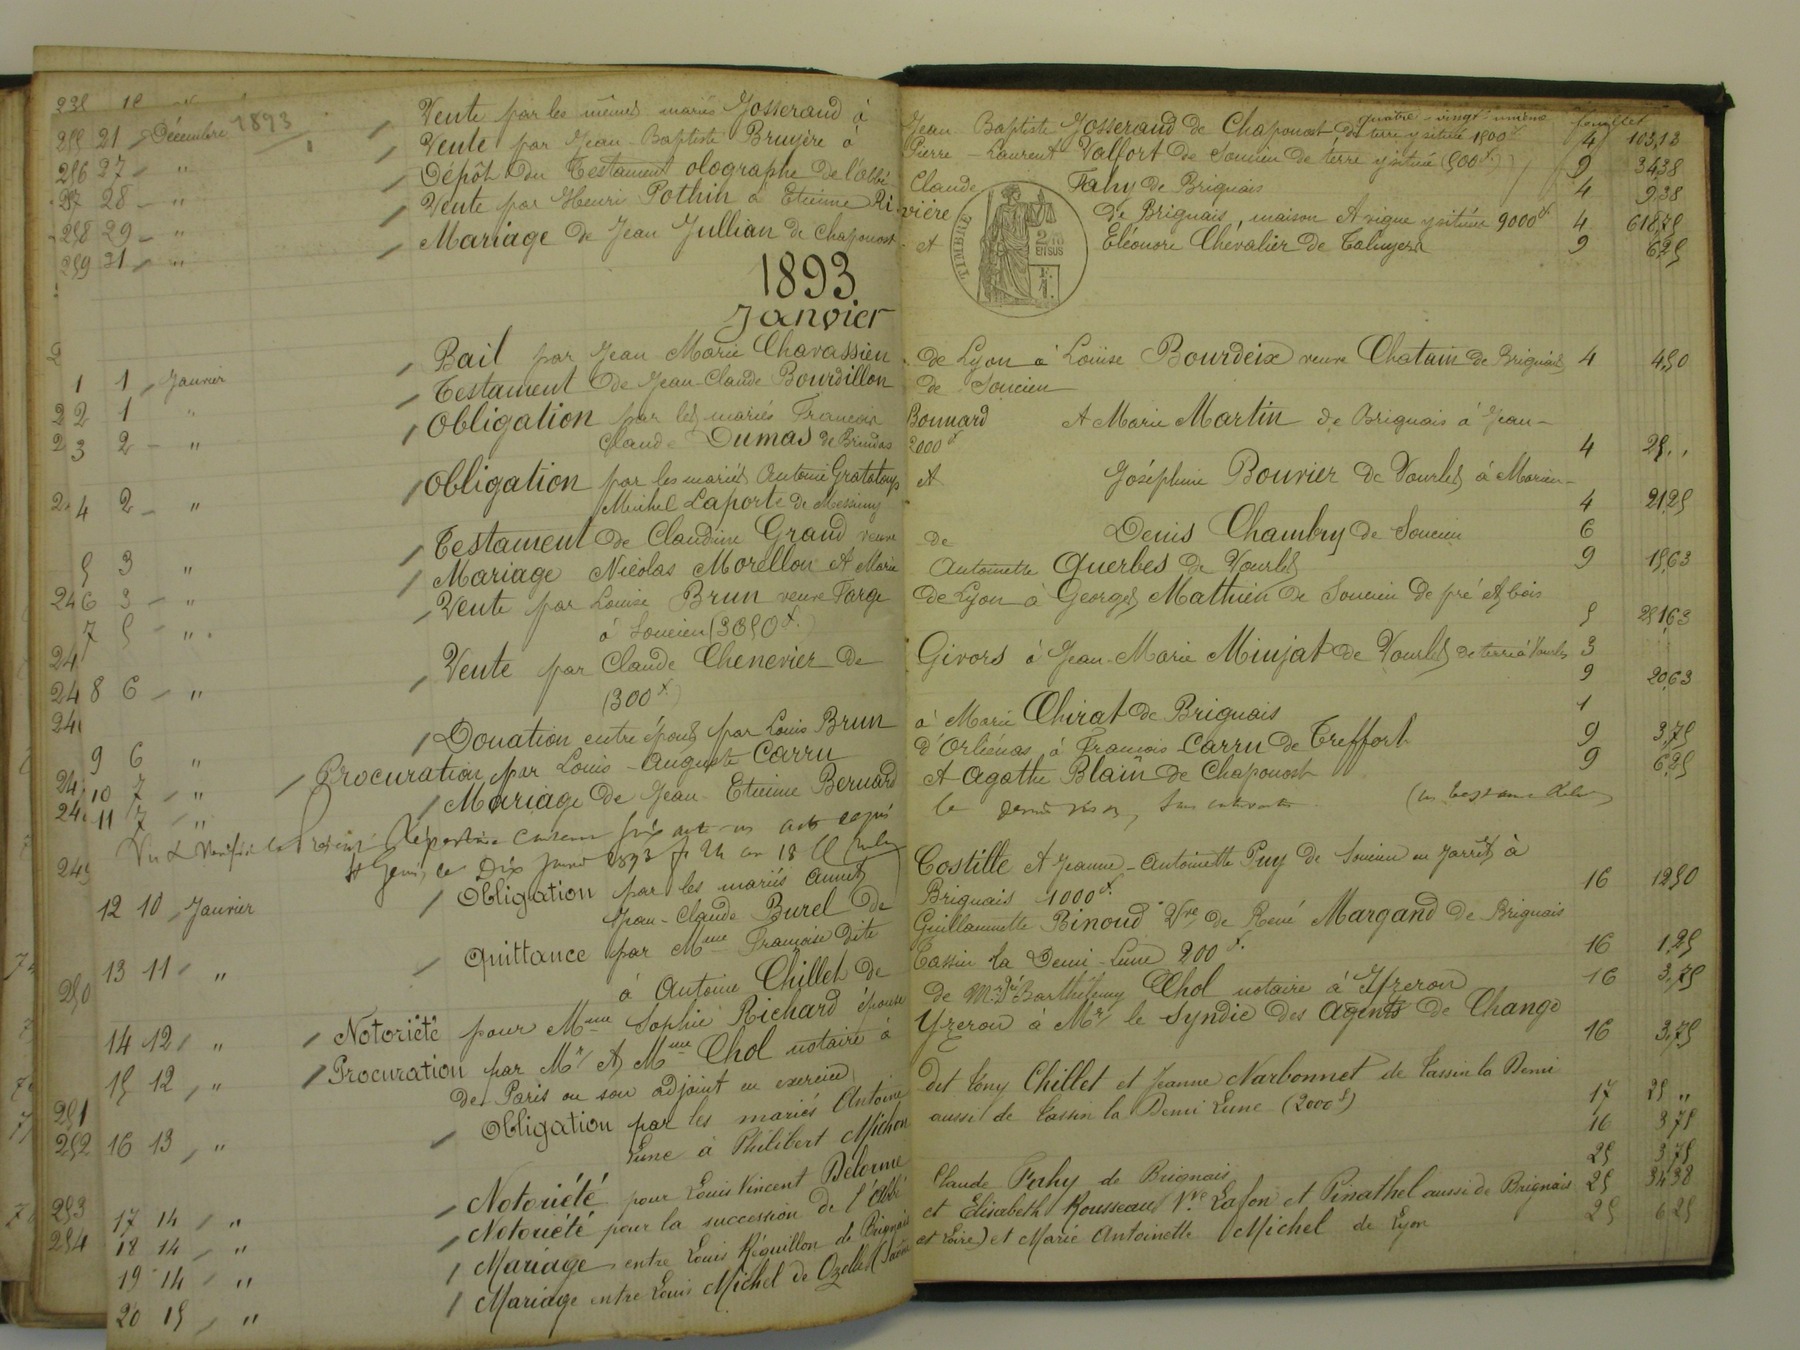 quatre-vingt-unième feuillet
Vente par les mêmes mariés Josserand à Jean Baptiste Josserand de Chaponost de terre y située 1500f 4 103,13
255 21 Décembre 1893 Vente par Jean-Baptiste Bruyère à Pierre-Laurent Valfort de Soucieu de terre y située (500f) 9 34,38
256 27 " Dépôt du Testament olographe de l'abbé Claude Fahy de Brignais 4 9,38
257 28 " Vente par Henri Pothin à Etienne Rivière de Brignais, maison et vigne y située 9000f 4 618,75
258 29 " Mariage de Jean Jullian de Chaponost et Eléonore Chevalier de Taluyers 9 6,25
259 31 "
TIMBRE
2/10 EN SUS
1893
Janvier
1 1 Janvier Bail par Jean Marie Chavassieu de Lyon à Louise Bourdeix veuve Chatain de Brignais 4 4,50
2 1 " Testament de Jean-Claude Bourdillon de Soucieu
3 2 " Obligation par les mariés François Bonnard et Marie Martin de Brignais à Jean-
Claude Dumas de Brindas 2000f 4 25 "
4 2 " Obligation par les mariés Antoine Grataloup et Joséphine Bouvier de Vourles à Marien-
Michel Laporte de Messimy 4 21,25
5 3 " Testament de Claudine Grand veuve de Denis Chambry de Soucieu 6
6 3 " Mariage Nicolas Morellon et Marie Antoinette Querbes de Vourles 9 15,63
7 5 " Vente par Louise Brun veuve Farge de Lyon à Georges Mathieu de Soucieu de pré et bois
à Soucieu (3650f.) 5 251,63
8 6 " Vente par Claude Chenevier de Givors à Jean-Marie Minjat de Vourles de terre à Vourles 3
(300f) 9 20,63
9 6 " Donation entre époux par Louis Brun à Marie Chirat de Brignais 1
10 7 " Procuration par Louis-Auguste Carru d'Orliénas à François Carru de Treffort 9 3,75
11 7 " Mariage de Jean-Etienne Bernard et Agathe Blain de Chaponost 9 6,25
Vu et Vérifié le Présent Répertoire
St Genis, ce Dix Janvier 1893
12 10 Janvier Obligation par les mariés Annet Costille et Jeanne-Antoinette Puy de Soucieu en Jarrêt à
Jean-Claude Burel de Brignais 1000f. 16 12,50
13 11 " Quittance par Mme Françoise dite Guillaumette Binoud Vve de René Margand de Brignais
à Antoine Chillet de Tassin la Demi-Lune 200f. 16 1,25
14 12 " Notoriété pour Mme Sophie Richard épouse de Mr Barthélemy Chol notaire à Yzeron 16 3,75
15 12 " Procuration par Mr et Mme Chol notaire à Yzeron à Mr le Syndic des Agents de Change
de Paris ou son adjoint en exercice 16 3,75
16 13 " Obligation par les mariés Antoine dit Tony Chillet et Jeanne Narbonnet de Tassin la Demi
Lune à Philibert Michon aussi de Tassin la Demi Lune (2000f) 17 25 "
17 14 " Notoriété pour Louis Vincent Delorme 16 3,75
18 14 " Notoriété pour la succession de l'abbé Claude Fahy de Brignais 25 3,75
19 14 " Mariage entre Louis Réguillon de Brignais et Elisabeth Rousseau Vve Lafon et Pinathel aussi de Brignais 25 34,38
20 15 " Mariage entre Louis Michel de Ozolles (Saône et Loire) et Marie Antoinette Michel de Lyon 25 6,25